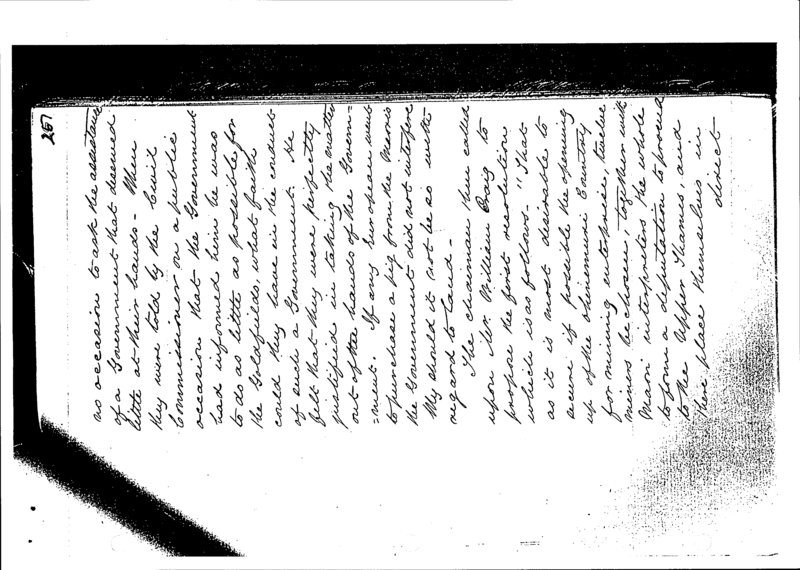 267
no occasion to ask the assistance
of a Government that deserved
little at their hands - When
they were told by the Civil
Commissioner on a public
occasion that the Government
had informed him he was
to do as little as possible for
the Goldfields, what faith
could they have in the conduct
of such a Government. He
felt that they were perfectly
justified in taking the matter
out of the hands of the Govern=
=ment. If any European went
to purchase a pig from the Maoris
the Government did not interfere
Why should it not be so with
regard to land -
The chairman then called
upon Mr. William Craig to
propose the first resolution
which is as follows - "That
as it is most desirable to
secure if possible the opening
up of the Ohinemuri Country
for mining enterprise, twelve
miners be chosen together with
Maori interpreters the whole
to form a deputation to proceed
to the Upper Thames, and
there place themselves in
direct